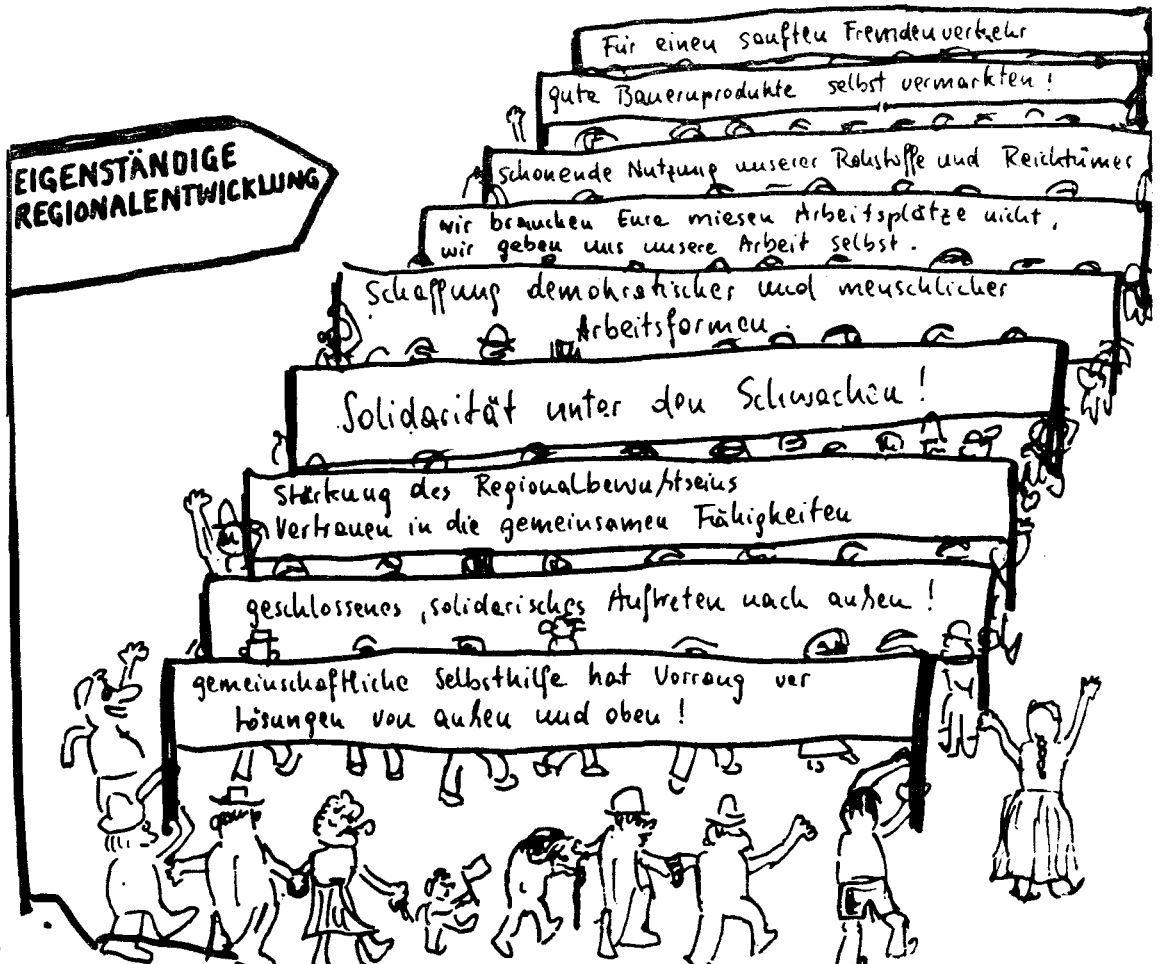 EIGENSTÄNDIGE
REGIONALENTWICKLUNG
Für einen sanften Fremdenverkehr
gute Bauernprodukte selbst vermarkten!
schonende Nutzung unserer Rohstoffe und Reichtümer
wir brauchen Eure miesen Arbeitsplätze nicht,
wir geben uns unsere Arbeit selbst.
Schaffung demokratischer und menschlicher
Arbeitsformen.
Solidarität unter den Schwachen!
Stärkung des Regionalbewußtseins
Vertrauen in die gemeinsamen Fähigkeiten
geschlossenes, solidarisches Auftreten nach außen!
gemeinschaftliche Selbsthilfe hat Vorrang vor
Lösungen von außen und oben!